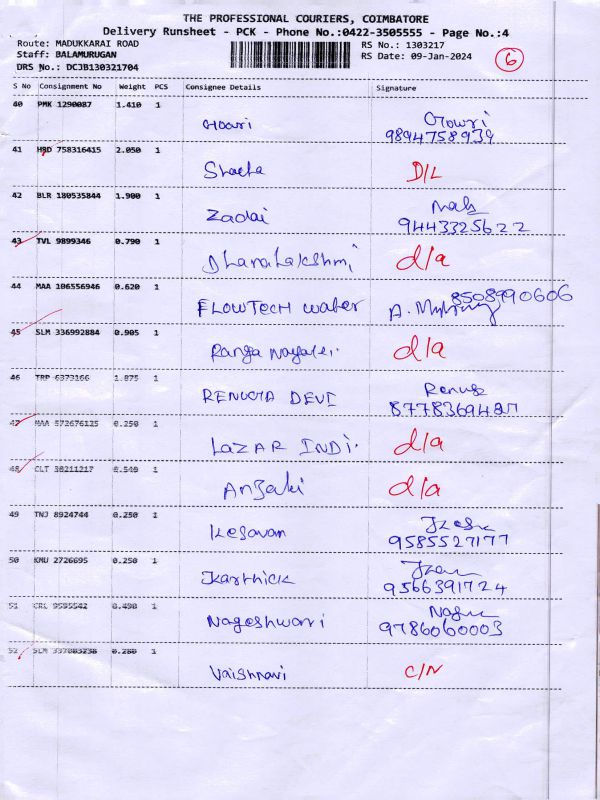 THE PROFESSIONAL COURIERS, COIMBATORE
Delivery Runsheet - PCK - Phone No.:0422-3505555 - Page No.:4
Route: MADUKKARAI ROAD RS No.: 1303217
Staff: BALAMURUGAN RS Date: 09-Jan-2024 6
DRS No.: DCJB130321704
S No Consignment No Weight PCS Consignee Details Signature
40 PMK 1290087 1.410 1
Gowri Gowri
9894758939
41 HSD 758316415 2.050 1
D/L
42 BLR 180535844 1.900 1
Zadai
9443325622
43 TVL 9899346 0.790 1
Dhanalakshmi d/a
44 MAA 106556946 0.620 1
8508990606
FLOWTECH water
45 SLM 336992884 0.905 1
Ranga Nayaki d/a
46 TRP 6373166 1.875 1
RENUGA DEVI Renuga
47 MAA 572676125 0.250 1
LAZAR INDI. d/a
48 CLT 38211217 0.540 1
d/a
49 TNJ 8924744 0.250 1
Kesavan
9585527177
50 KMU 2726695 0.250 1
Karthick
9566391724
51 CRL 9595542 0.490 1
Nageshwari
9786060003
52 SLM 337083238 0.280 1
Vaishnavi C/N